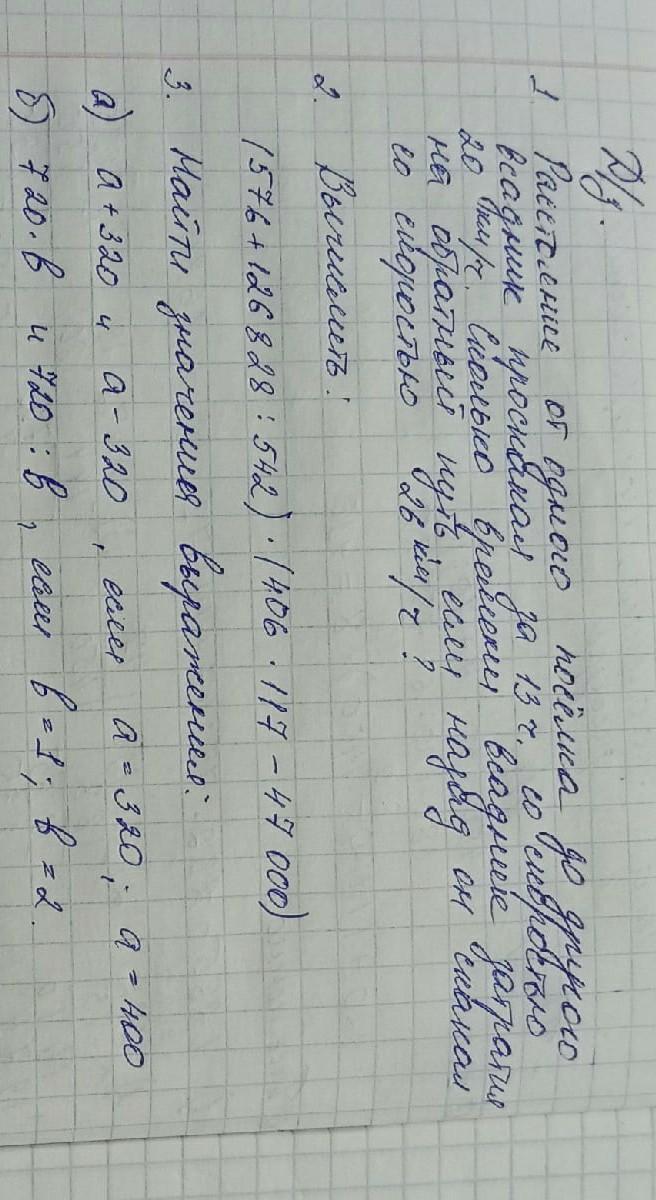 Д/з.
1 Расстояние от одного посёлка до другого
всадник проскакал за 13 ч. со скоростью
20 км/ч. Сколько времени всадник затратил
на обратный путь если назад он скакал
со скоростью 26 км/ч ?
2. Вычислить:
(576 + 126828 : 542) · (406 · 117 - 47 000)
3. Найти значения выражения:
а) а + 320 и а - 320 , если а = 320; а = 400
б) 720 · в и 720 : в , если в = 1; в = 2.